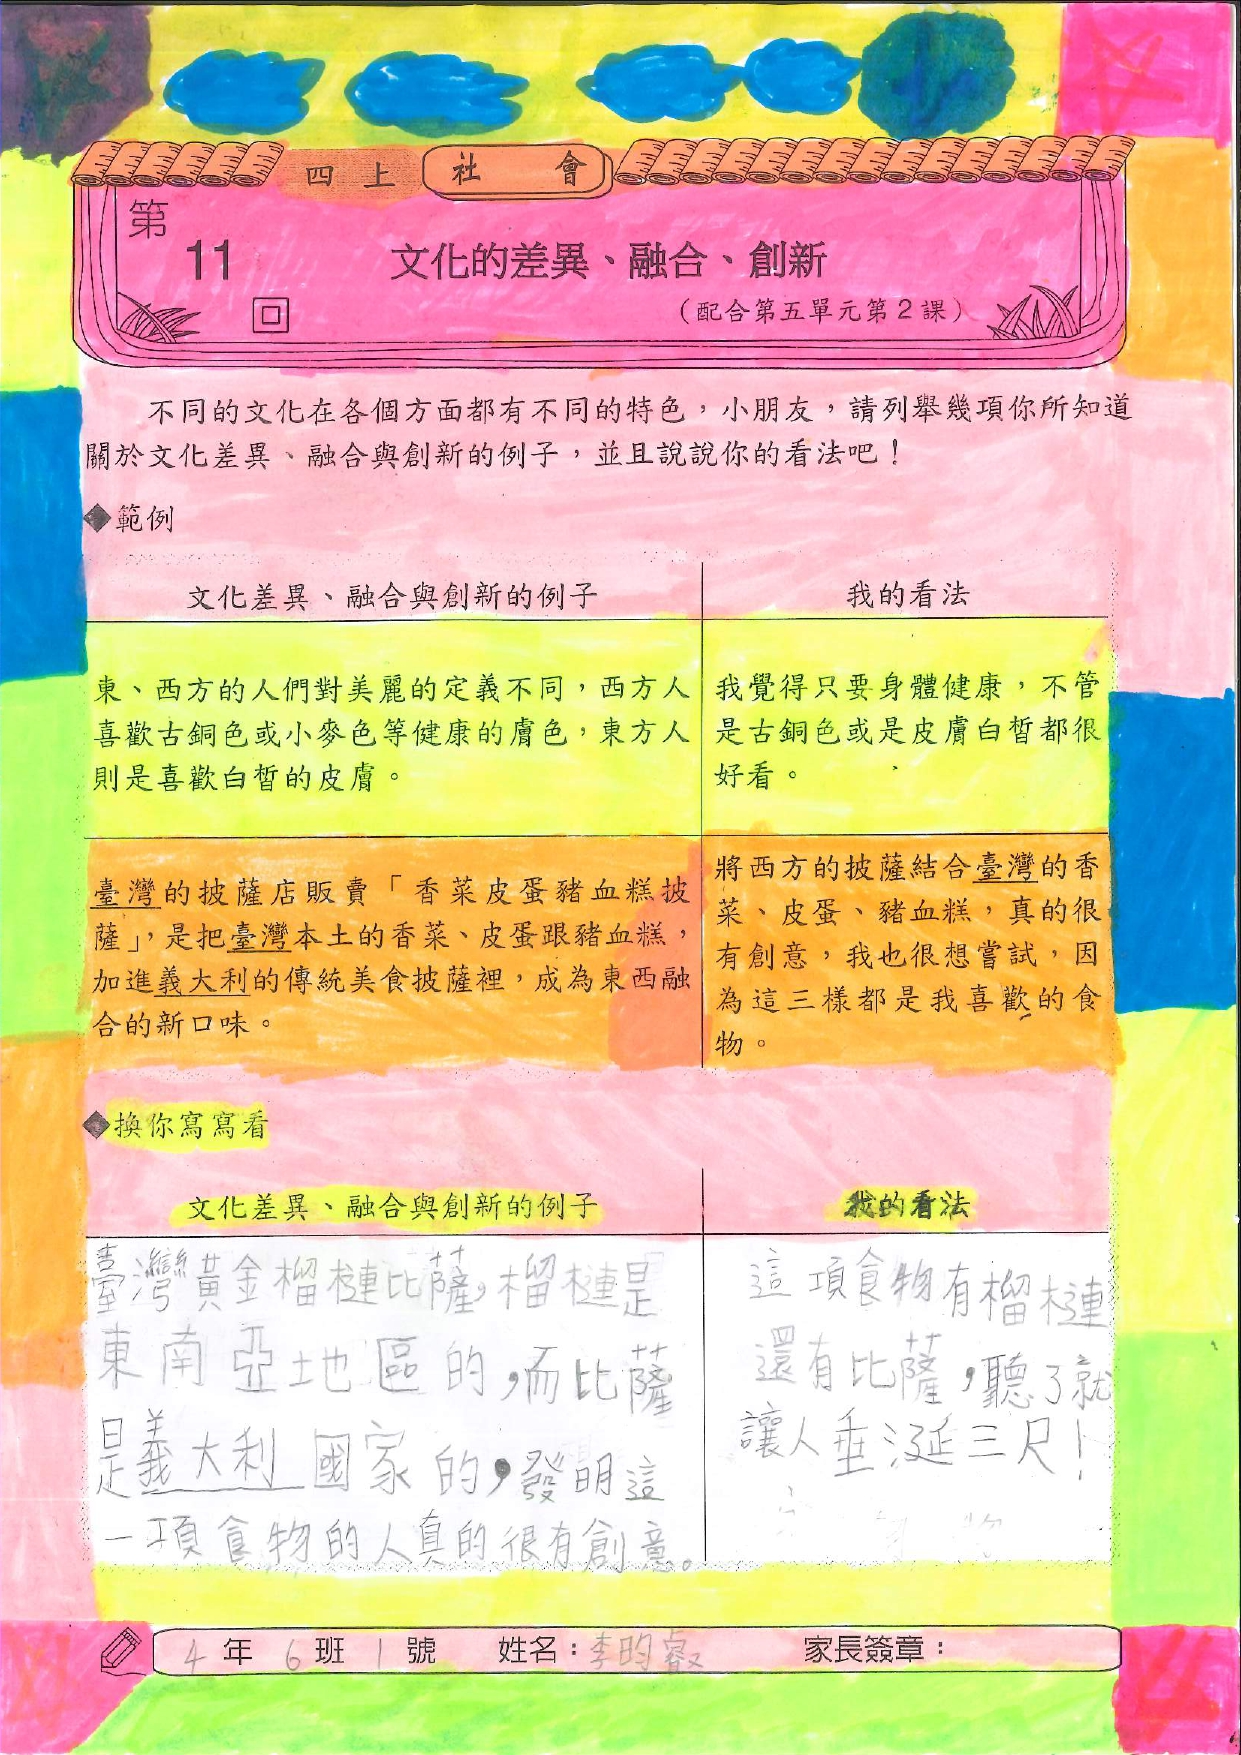 四上 社會
第11回
文化的差異、融合、創新
(配合第五單元第2課)
不同的文化在各個方面都有不同的特色,小朋友,請列舉幾項你所知道
關於文化差異、融合與創新的例子,並且說說你的看法吧!
◆範例
文化差異、融合與創新的例子
我的看法
東、西方的人們對美麗的定義不同,西方人
喜歡古銅色或小麥色等健康的膚色,東方人
則是喜歡白皙的皮膚。
我覺得只要身體健康,不管
是古銅色或是皮膚白皙都很
好看。
臺灣的披薩店販賣「香菜皮蛋豬血糕披
薩」,是把臺灣本土的香菜、皮蛋跟豬血糕,
加進義大利的傳統美食披薩裡,成為東西融
合的新口味。
將西方的披薩結合臺灣的香
菜、皮蛋、豬血糕,真的很
有創意,我也很想嘗試,因
為這三樣都是我喜歡的食
物。
◆換你寫寫看
文化差異、融合與創新的例子
我的看法
臺灣黃金榴槤比薩,榴槤是
東南亞地區的,而比薩
是義大利國家的,發明這
一項食物的人真的很有創意。
這項食物有榴槤
還有比薩,聽了就
讓人垂涎三尺!
4年6班1號 姓名:李昀叡 家長簽章: